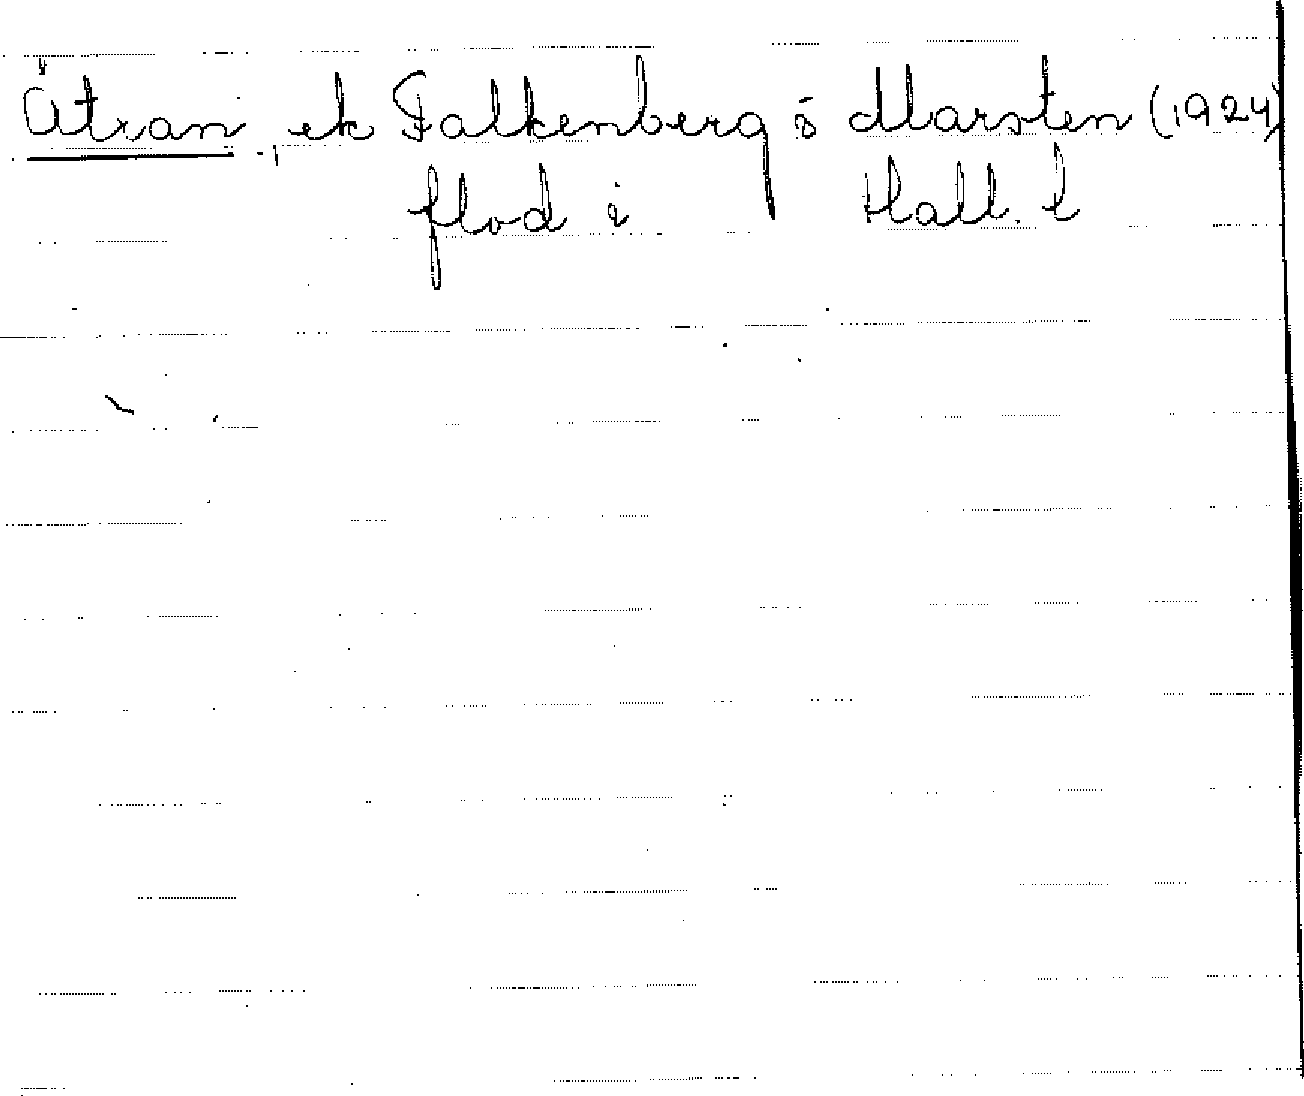 Ätran, ek Falkenberg ö Marsten (1924)
flod i Hall. l